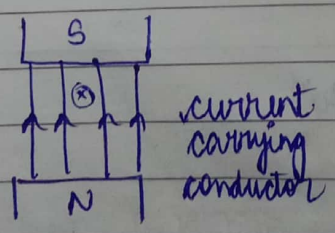 S
current
carrying
conductor
N